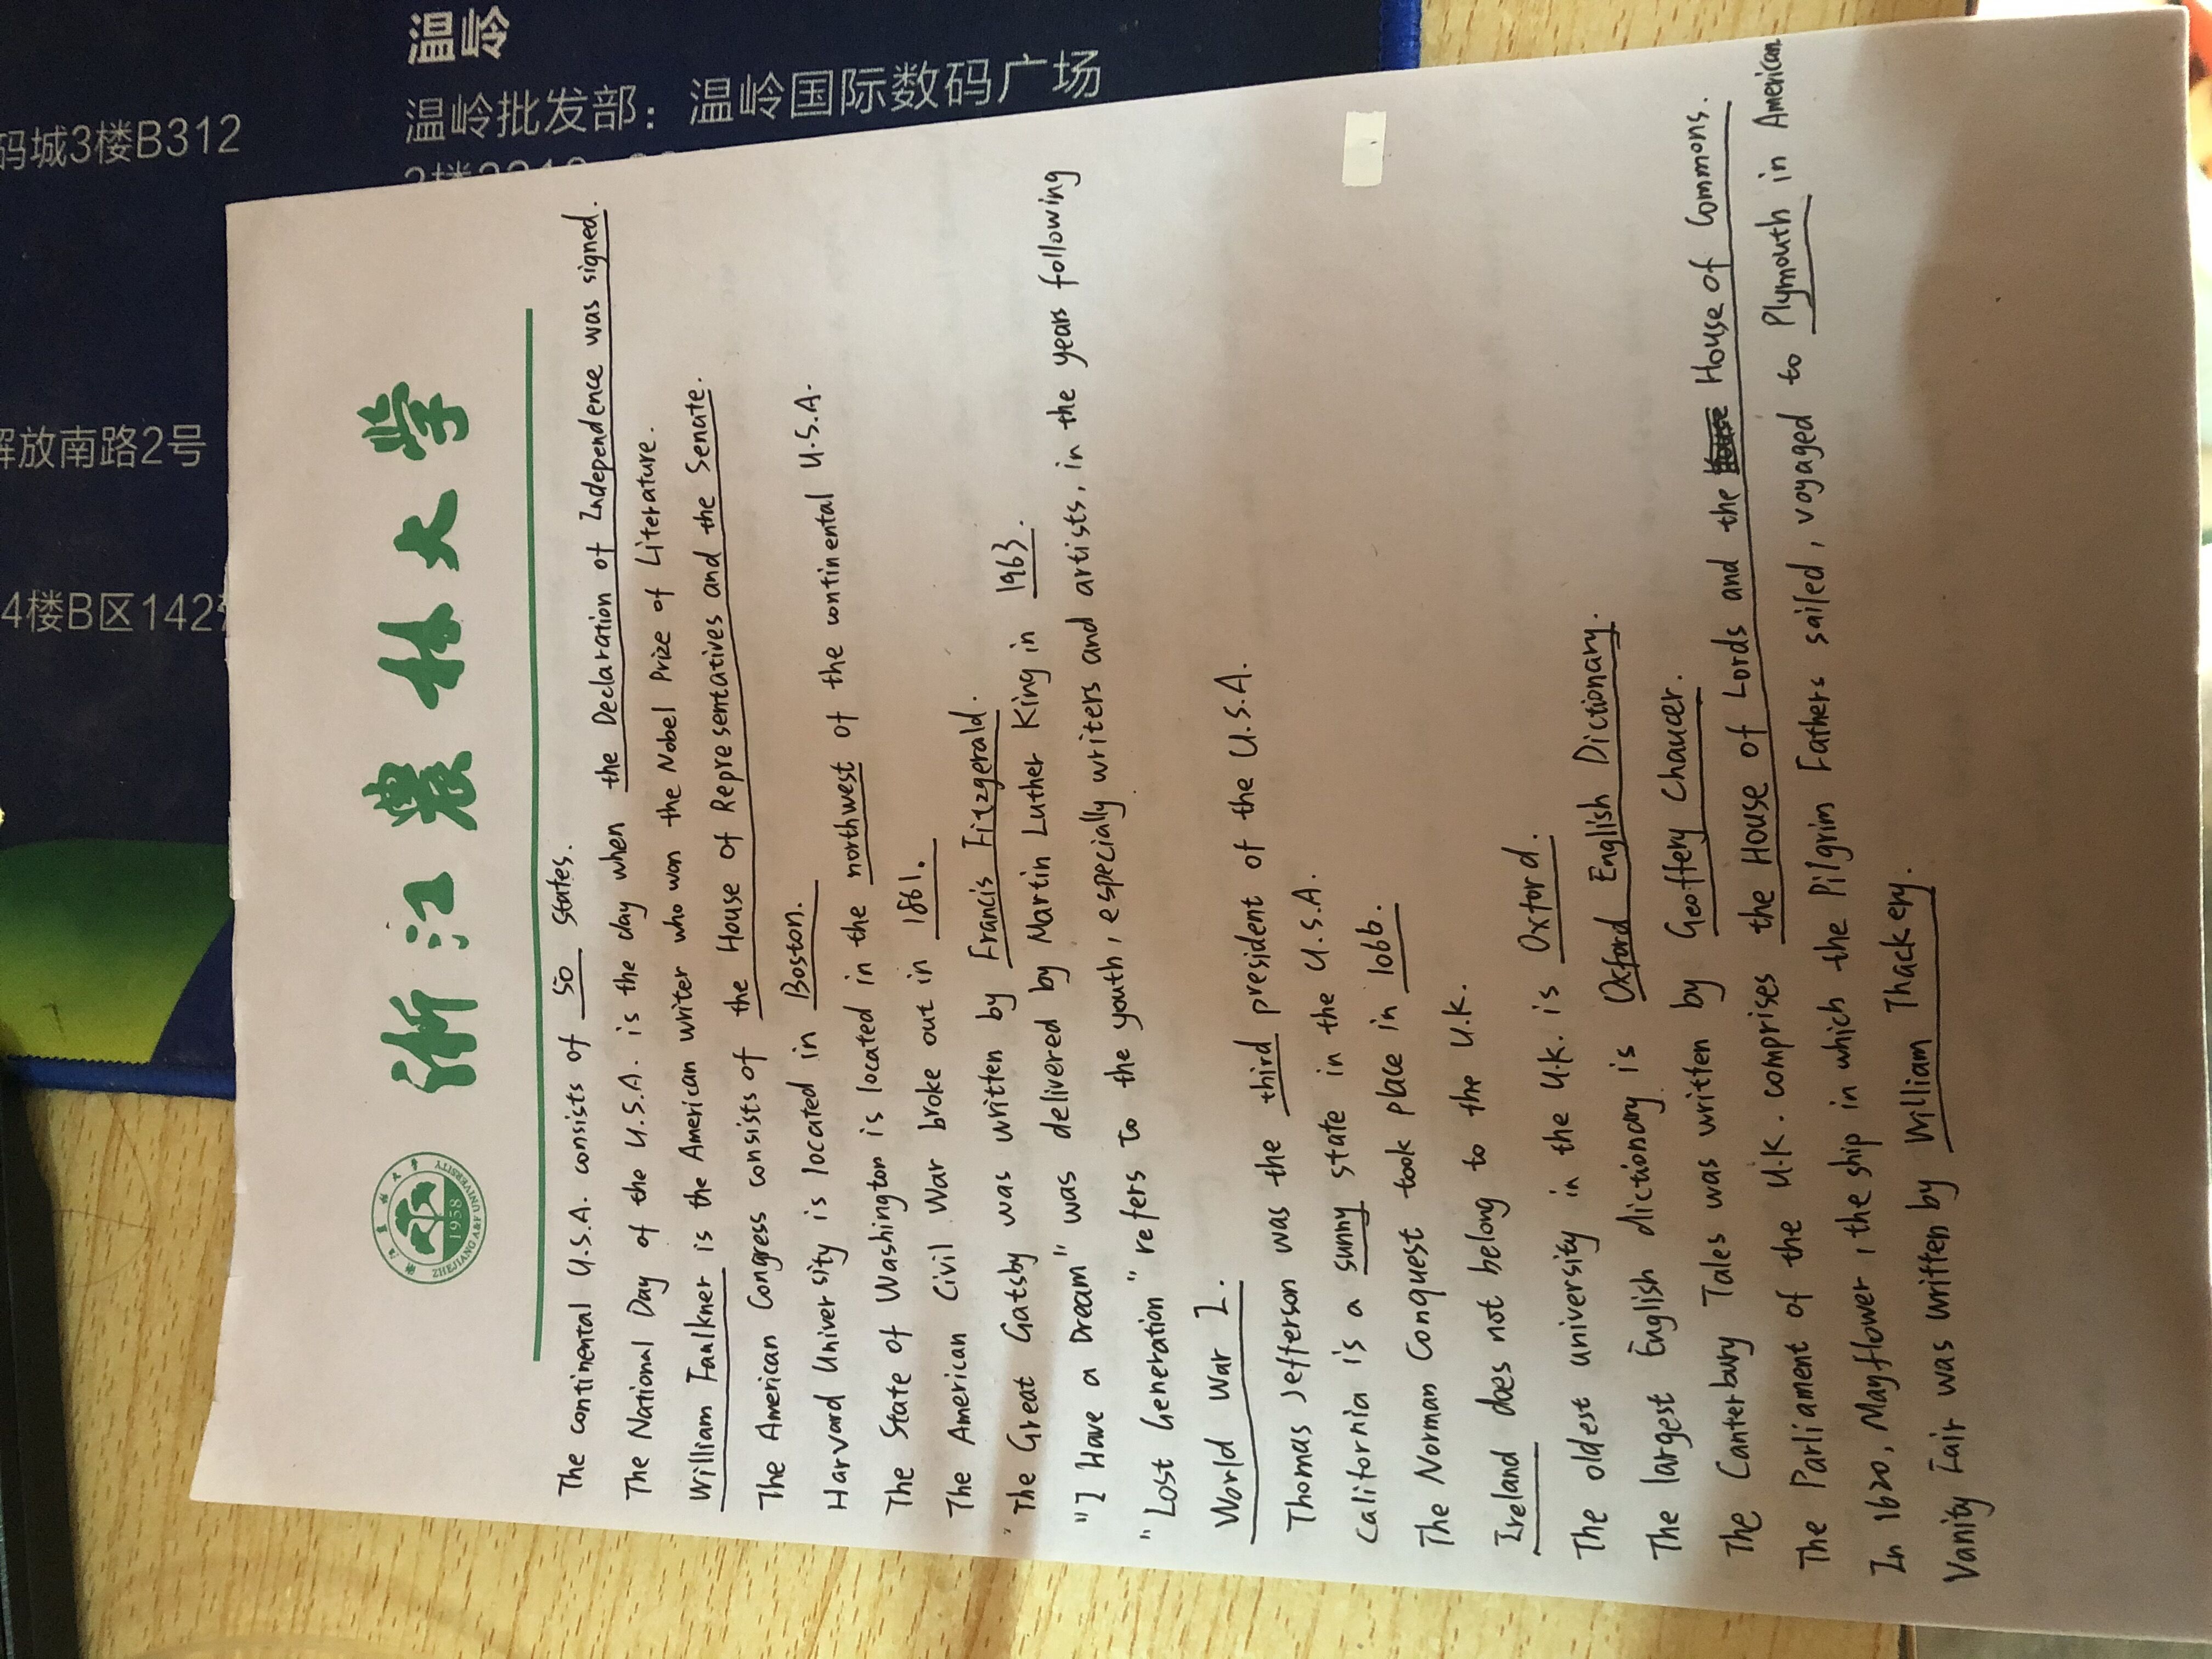 4楼B区142
解放南路2号
码城3楼B312
温岭
温岭批发部：温岭国际数码广场
浙江农林大学
ZHEJIANG A&F UNIVERSITY
1958
浙江農林大学
The continental U.S.A. consists of 50 states.
The National Day of the U.S.A. is the day when the Declaration of Independence was signed.
William Faulkner is the American writer who won the Nobel Prize of Literature.
The American Congress consists of the House of Representatives and the Senate.
Harvard University is located in Boston.
The State of Washington is located in the northwest of the continental U.S.A.
The American Civil War broke out in 1861.
The Great Gatsby was written by Francis Fitzgerald.
"I Have a Dream" was delivered by Martin Luther King in 1963.
"Lost Generation" refers to the youth, especially writers and artists, in the years following
World War I.
Thomas Jefferson was the third president of the U.S.A.
California is a sunny state in the U.S.A.
The Norman Conquest took place in 1066.
Ireland does not belong to the U.K.
The oldest university in the U.K. is Oxford.
The largest English dictionary is Oxford English Dictionary.
The Canterbury Tales was written by Geoffery Chaucer.
The Parliament of the U.K. comprises the House of Lords and the House of Commons.
In 1620, Mayflower, the ship in which the Pilgrim Fathers sailed, voyaged to Plymouth in American
Vanity Fair was written by William Thackery.